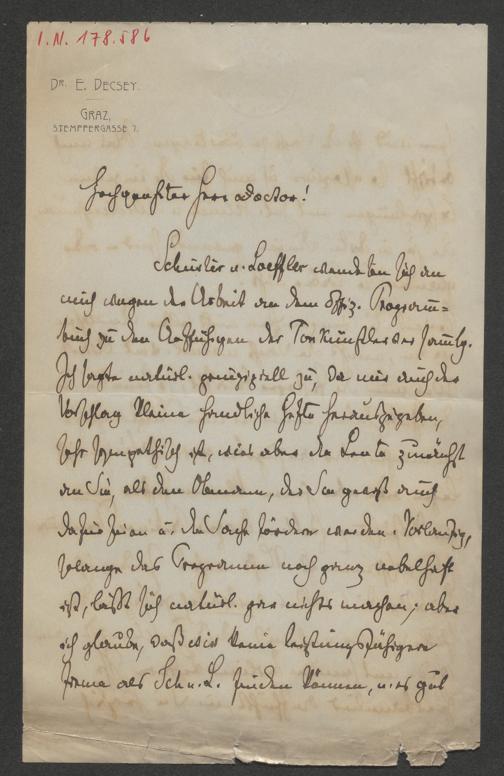 I.N. 178.586
DR. E. DECSEY.
GRAZ,
STEMPFERGASSE 7.
Hochgeehrter Herr Doctor!
Schuster u. Loeffler wendeten sich an
mich wegen der Arbeit an dem offiz. Programm-
buch zu den Aufführgen der Tonkünstlerversammlg.
Ich sagte natürl. prinzipiell zu, da mir auch der
Vorschlag kleine handliche Hefte herauszugeben,
sehr sympathisch ist, wies aber die Leute zunächst
an Sie, als den Obmann, der Sie gewiß auch
dafür sein u. die Sache fördern werden. Vorläufig,
solange das Programm noch ganz nebelhaft
ist, läßt sich natürl. gar nichts machen; aber
ich glaube, daß wir keine leistungsfähigere
Firma als Sch u. L. finden können, u. es gut